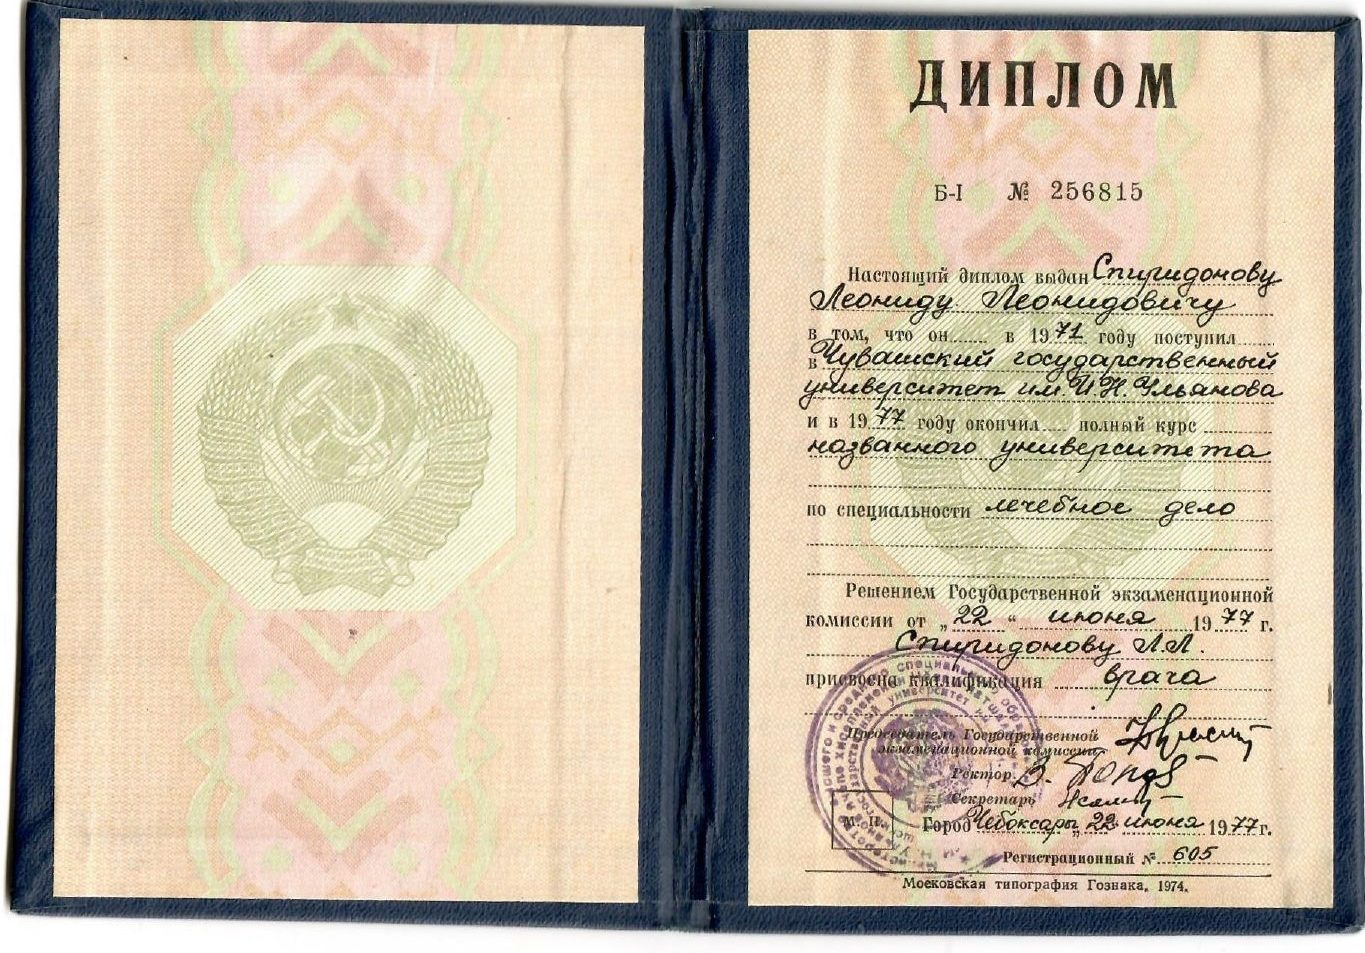 ДИПЛОМ
Б-I № 256815
Настоящий диплом выдан Спиридонову
Леониду Леонидовичу
в том, что он в 1971 году поступил
в Чувашский государственный
университет им. И.Н. Ульянова
и в 1977 году окончил полный курс
названного университета
по специальности лечебное дело
Решением Государственной экзаменационной
комиссии от „22“ июня 1977 г.
Спиридонову Л.Л.
присвоена квалификация врача
Председатель Государственной
экзаменационной комиссии
Ректор
Секретарь
М. П. Город Чебоксары „22“ июня 1977 г.
Регистрационный № 605
Московская типография Гознака. 1974.